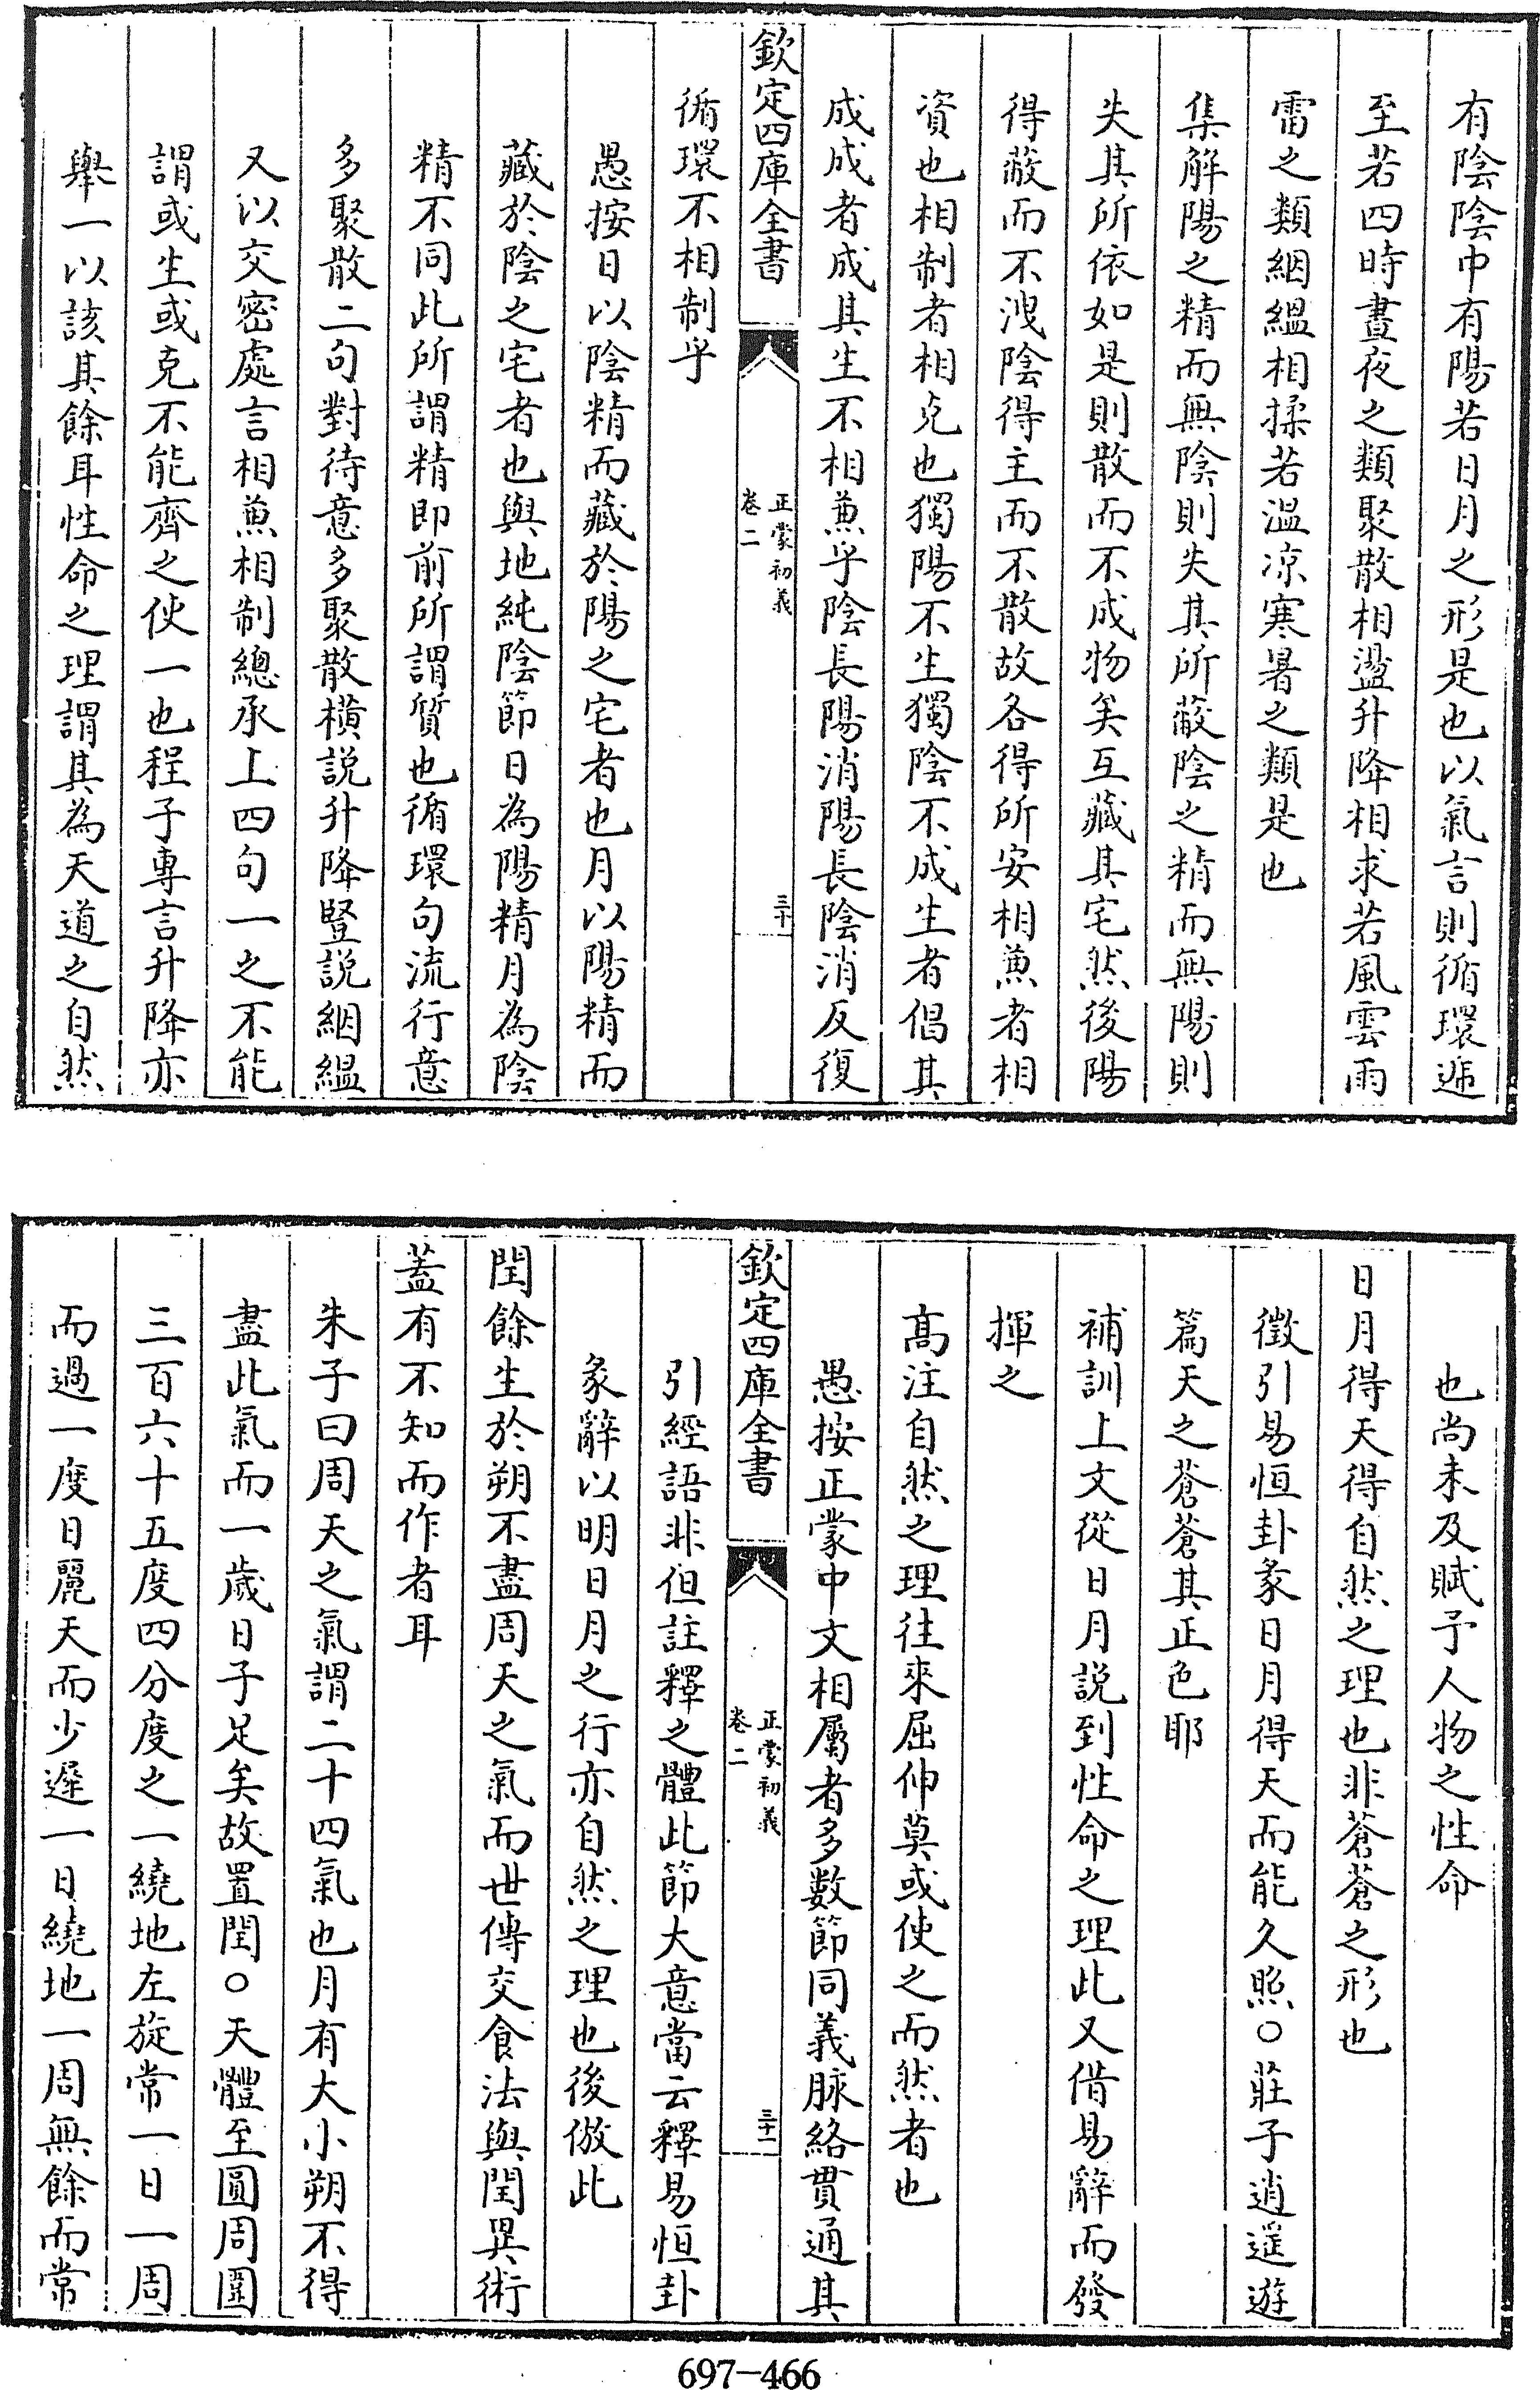 有陰陰中有陽若日月之形是也以氣言則循環遞
至若四時晝夜之類聚散相盪升降相求若風雲雨
雷之類絪縕相揉若溫凉寒暑之類是也
集解陽之精而無陰則失其所蔽陰之精而無陽則
失其所依如是則散而不成物矣互藏其宅然後陽
得蔽而不洩陰得主而不散故各得所安相兼者相
資也相制者相克也獨陽不生獨陰不成生者倡其
成成者成其生不相兼乎陰長陽消陽長陰消反復
欽定四庫全書
正蒙初義
卷二
三十
循環不相制乎
愚按日以陰精而藏於陽之宅者也月以陽精而
藏於陰之宅者也與地純陰節日為陽精月為陰
精不同此所謂精即前所謂質也循環句流行意
多聚散二句對待意多聚散橫說升降豎說絪縕
又以交密處言相兼相制總承上四句一之不能
謂或生或克不能齊之使一也程子專言升降亦
舉一以該其餘耳性命之理謂其為天道之自然
也尚未及賦予人物之性命
日月得天得自然之理也非蒼蒼之形也
徵引易恒卦彖日月得天而能久照○莊子逍遥遊
篇天之蒼蒼其正色耶
補訓上文從日月說到性命之理此又借易辭而發
揮之
高注自然之理往來屈伸莫或使之而然者也
愚按正蒙中文相屬者多數節同義脉絡貫通其
欽定四庫全書
正蒙初義
卷二
三十一
引經語非但註釋之體此節大意當云釋易恒卦
彖辭以明日月之行亦自然之理也後倣此
閏餘生於朔不盡周天之氣而世傳交食法與閏異術
蓋有不知而作者耳
朱子曰周天之氣謂二十四氣也月有大小朔不得
盡此氣而一歲日子足矣故置閏○天體至圓周圍
三百六十五度四分度之一繞地左旋常一日一周
而過一度日麗天而少遲一日繞地一周無餘而常
697-466